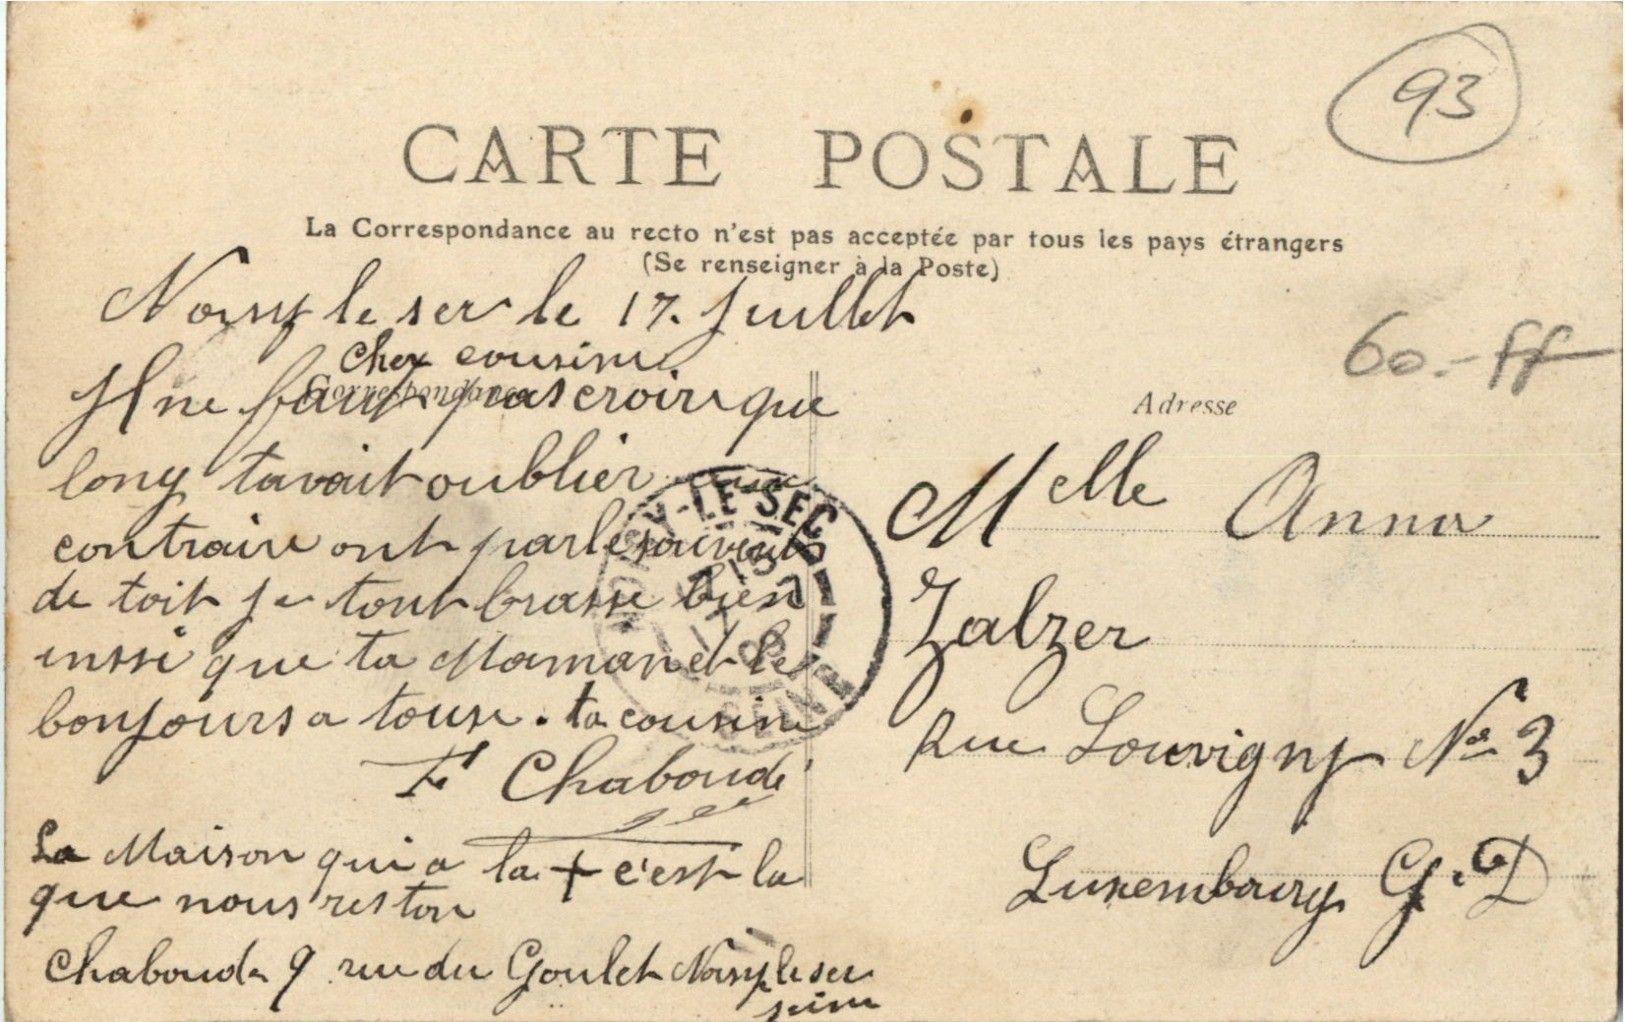 93
CARTE POSTALE
La Correspondance au recto n'est pas acceptée par tous les pays étrangers
(Se renseigner à la Poste)
Noisy le ser le 17. Juillet
60.- ff
Chex cousine
Correspondance
Il ne faut pas croire que
long tavait oublier aux
contraire ont parle souvent
de toit je tout brasse bien
inssi que ta Maman et le
bonjours a touse. ta cousine
Chaboud
La Maison qui a la + c'est la
que nous reston
Chaboud 9 rue du Goulet Noisy le ser
seine
NOISY-LE-SEC
SEINE
Adresse
Melle Anna
Zalzer
Rue Louvigny No 3
Luxembourg G. D